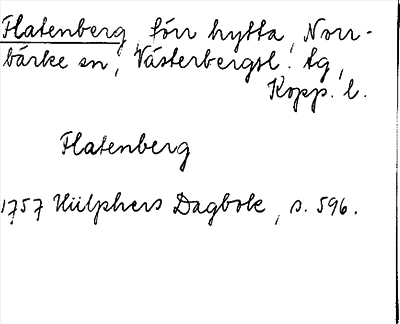 Flatenberg, förr hytta, Norr-
bärke sn, Västerbergsl. tg,
Kopp. l.
Flatenberg
1757 Hülphers Dagbok, s. 596.